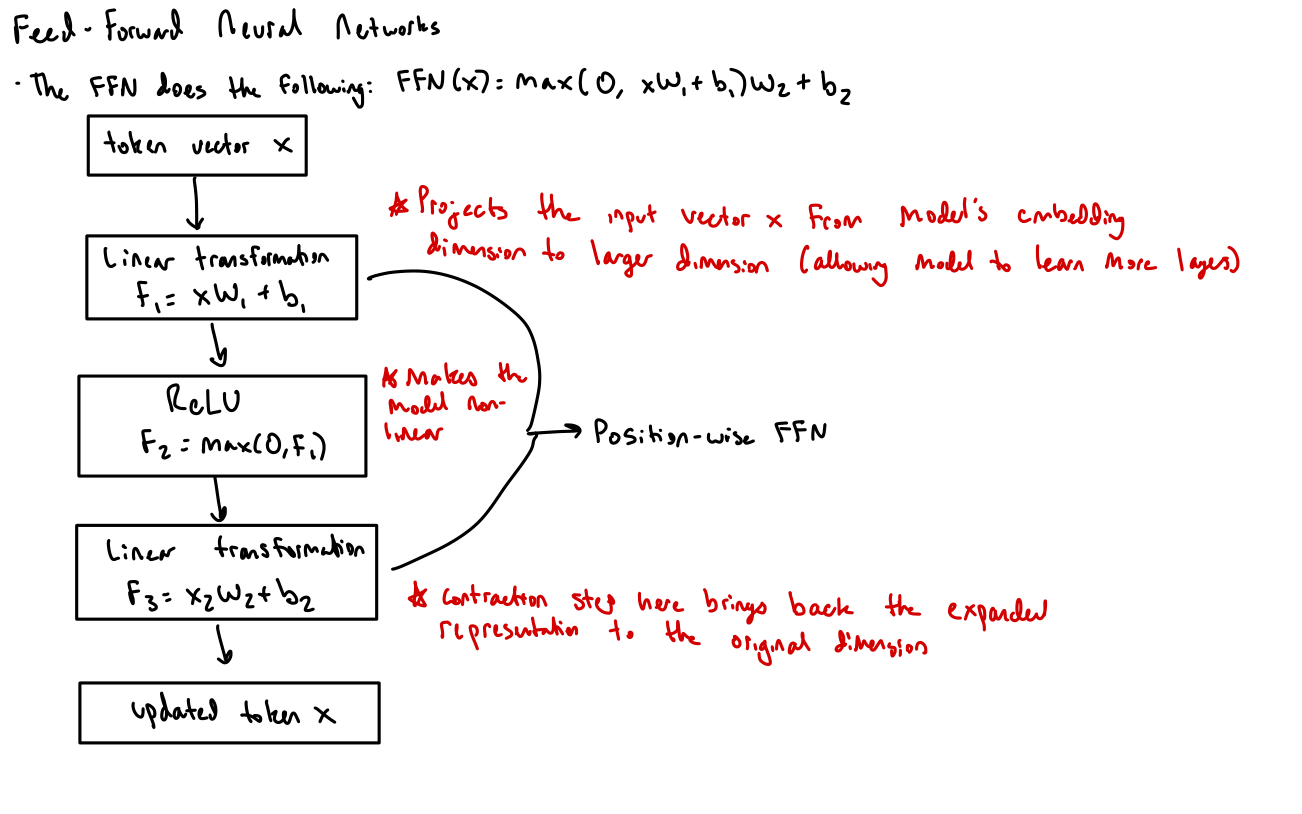 Feed-Forward Neural Networks
· The FFN does the following: FFN(x) = max(0, xW₁ + b₁)W₂ + b₂
token vector x
Linear transformation
F₁ = xW₁ + b₁
★ Projects the input vector x from model's embedding
dimension to larger dimension (allowing model to learn more layes)
ReLU
F₂ = max(0, F₁)
★ Makes the
model non-
linear
Position-wise FFN
Linear transformation
F₃ = x₂W₂ + b₂
★ Contraction step here brings back the expanded
representation to the original dimension
updated token x